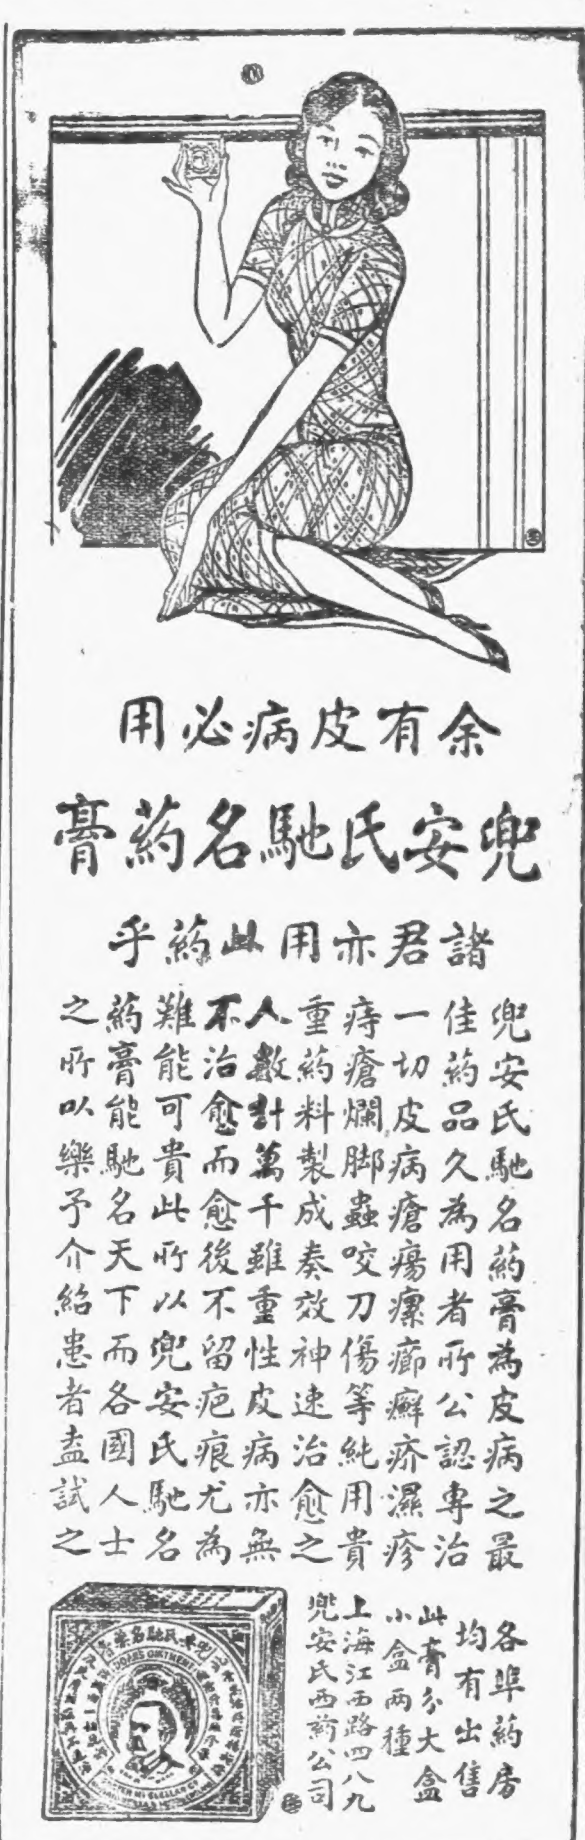 余有皮病必用
兜安氏馳名葯膏
諸君亦用此葯乎
兜安氏馳名葯膏為皮病之最
佳葯品久為用者所公認專治
一切皮病瘡瘍瘰癤癬疥濕疹
痔瘡爛脚蟲咬刀傷等純用貴
重葯料製成奏效神速治愈之
人數計萬千雖重性皮病亦無
不治愈而愈後不留疤痕尤為
難能可貴此所以兜安氏馳名
葯膏能馳名天下而各國人士
之所以樂予介紹患者盍試之
各埠葯房
均有出售
此膏分大盒
小盒兩種
上海江西路四八九
兜安氏西葯公司
兜安氏馳名葯膏
DOANS OINTMENT
FOSTER McCLELLAN CO